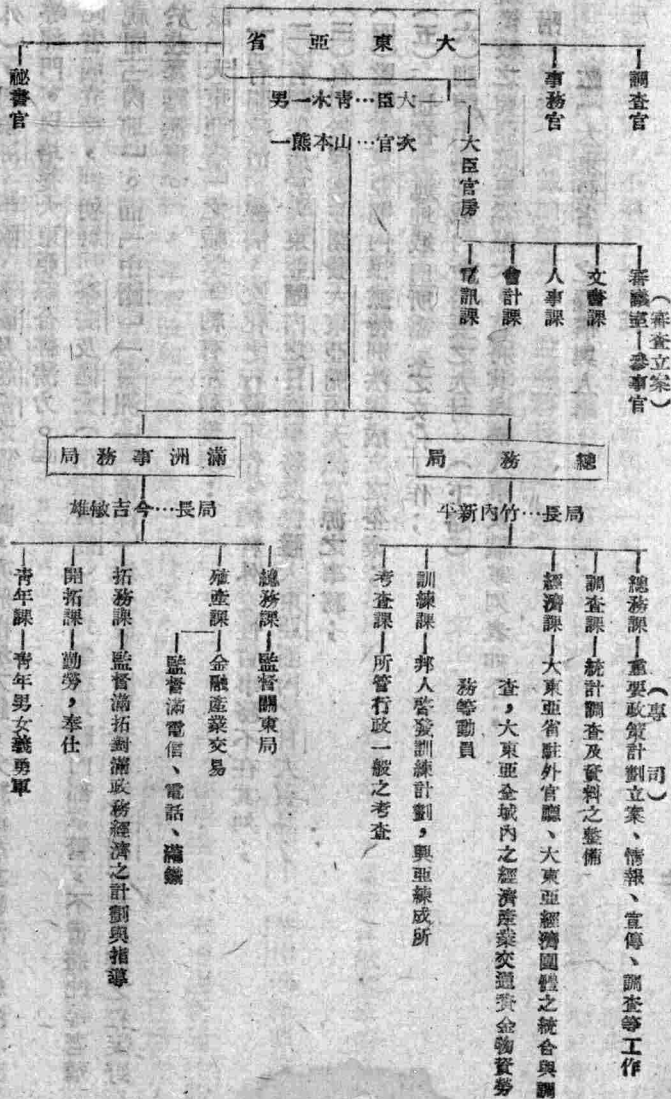 大東亞省
大臣…青木一男
次官…山本熊一
調查官
事務官
祕書官
大臣官房
(審查立案)
審議室—參事官
文書課
人事課
會計課
電訊課
總務局
局長…竹內新平
(專司)
總務課—重要政策計劃立案、情報、宣傳、調查等工作
調查課—統計調查及資料之整備
經濟課—大東亞省駐外官廳、大東亞經濟團體之統合與調
查,大東亞全域內之經濟產業交通資金物資勞
務等動員
訓練課—邦人啓發訓練計劃,興亞練成所
考查課—所管行政一般之考查
滿洲事務局
局長…今吉敏雄
總務課—監督關東局
殖產課—金融產業交易
監督滿電信、電話、滿鐵
拓務課—監督滿拓對滿政務經濟之計劃與指導
開拓課—勤勞,奉仕
靑年課—靑年男女義勇軍